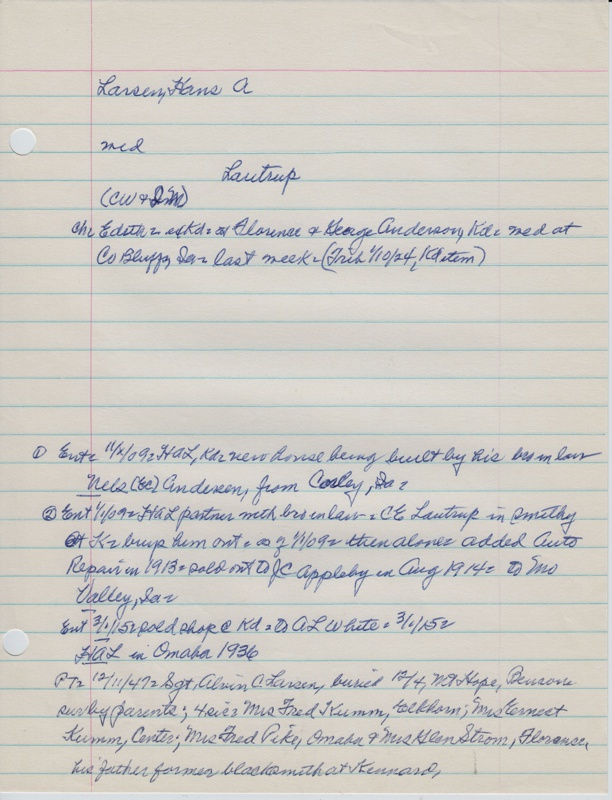 Larsen, Hans A
med
Lautrup
(CW &
ch: Edith = of Kd = & Florence & George Anderson, Kd = med at
Co Bluffs, Ia = last week = (Trib 1/10/24, Kd item)
① Ent = 11/x/09 = HAL, Kd = new house being built by his bro in law
Nels (EC) Andersen, from Corley, Ia =
② Ent 1/1/09 = HaL partner with bro in law = CE Lautrup in smithy
at K = buys him out = as of 1/1/09 = then alone = added Auto
Repair in 1913 = sold out to JC Appleby in Aug 1914 = to Mo
Valley, Ia =
Ent 3/1/15 = sold shop @ Kd = to AL White = 3/1/15 =
HAL in Omaha 1936
PT = 12/11/47 = Sgt, Alvin C. Larsen, buried 12/4, Mt Hope, Benson =
surby parents; 4 sis = Mrs Fred Kumm, Elkhorn; Mrs Ernest
Kumm, Center; Mrs Fred Pike, Omaha & Mrs Glen Strom, Florence,
his father former blacksmith at Kennard,